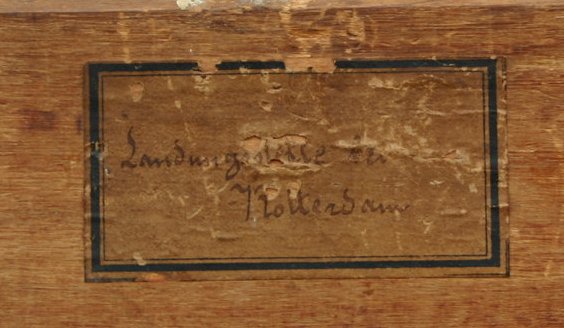 Landungsstelle bei
Rotterdam